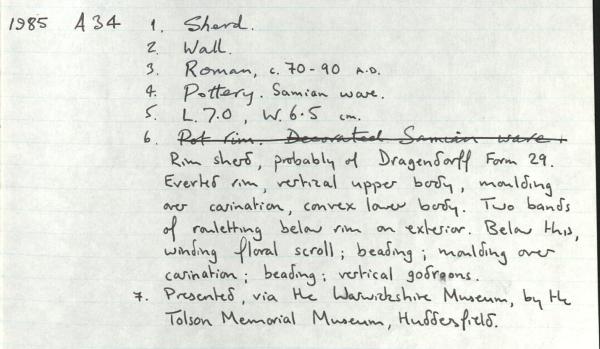 1985 A34 1. Sherd.
2. Wall.
3. Roman, c. 70-90 A.D.
4. Pottery. Samian ware.
5. L. 7.0, W. 6.5 cm.
6. Pot rim. Decorated Samian ware.
Rim sherd, probably of Dragendorff Form 29.
Everted rim, vertical upper body, moulding
over carination, convex lower body. Two bands
of rouletting below rim on exterior. Below this,
winding floral scroll; beading; moulding over
carination; beading; vertical godroons.
7. Presented, via the Warwickshire Museum, by the
Tolson Memorial Museum, Huddersfield.